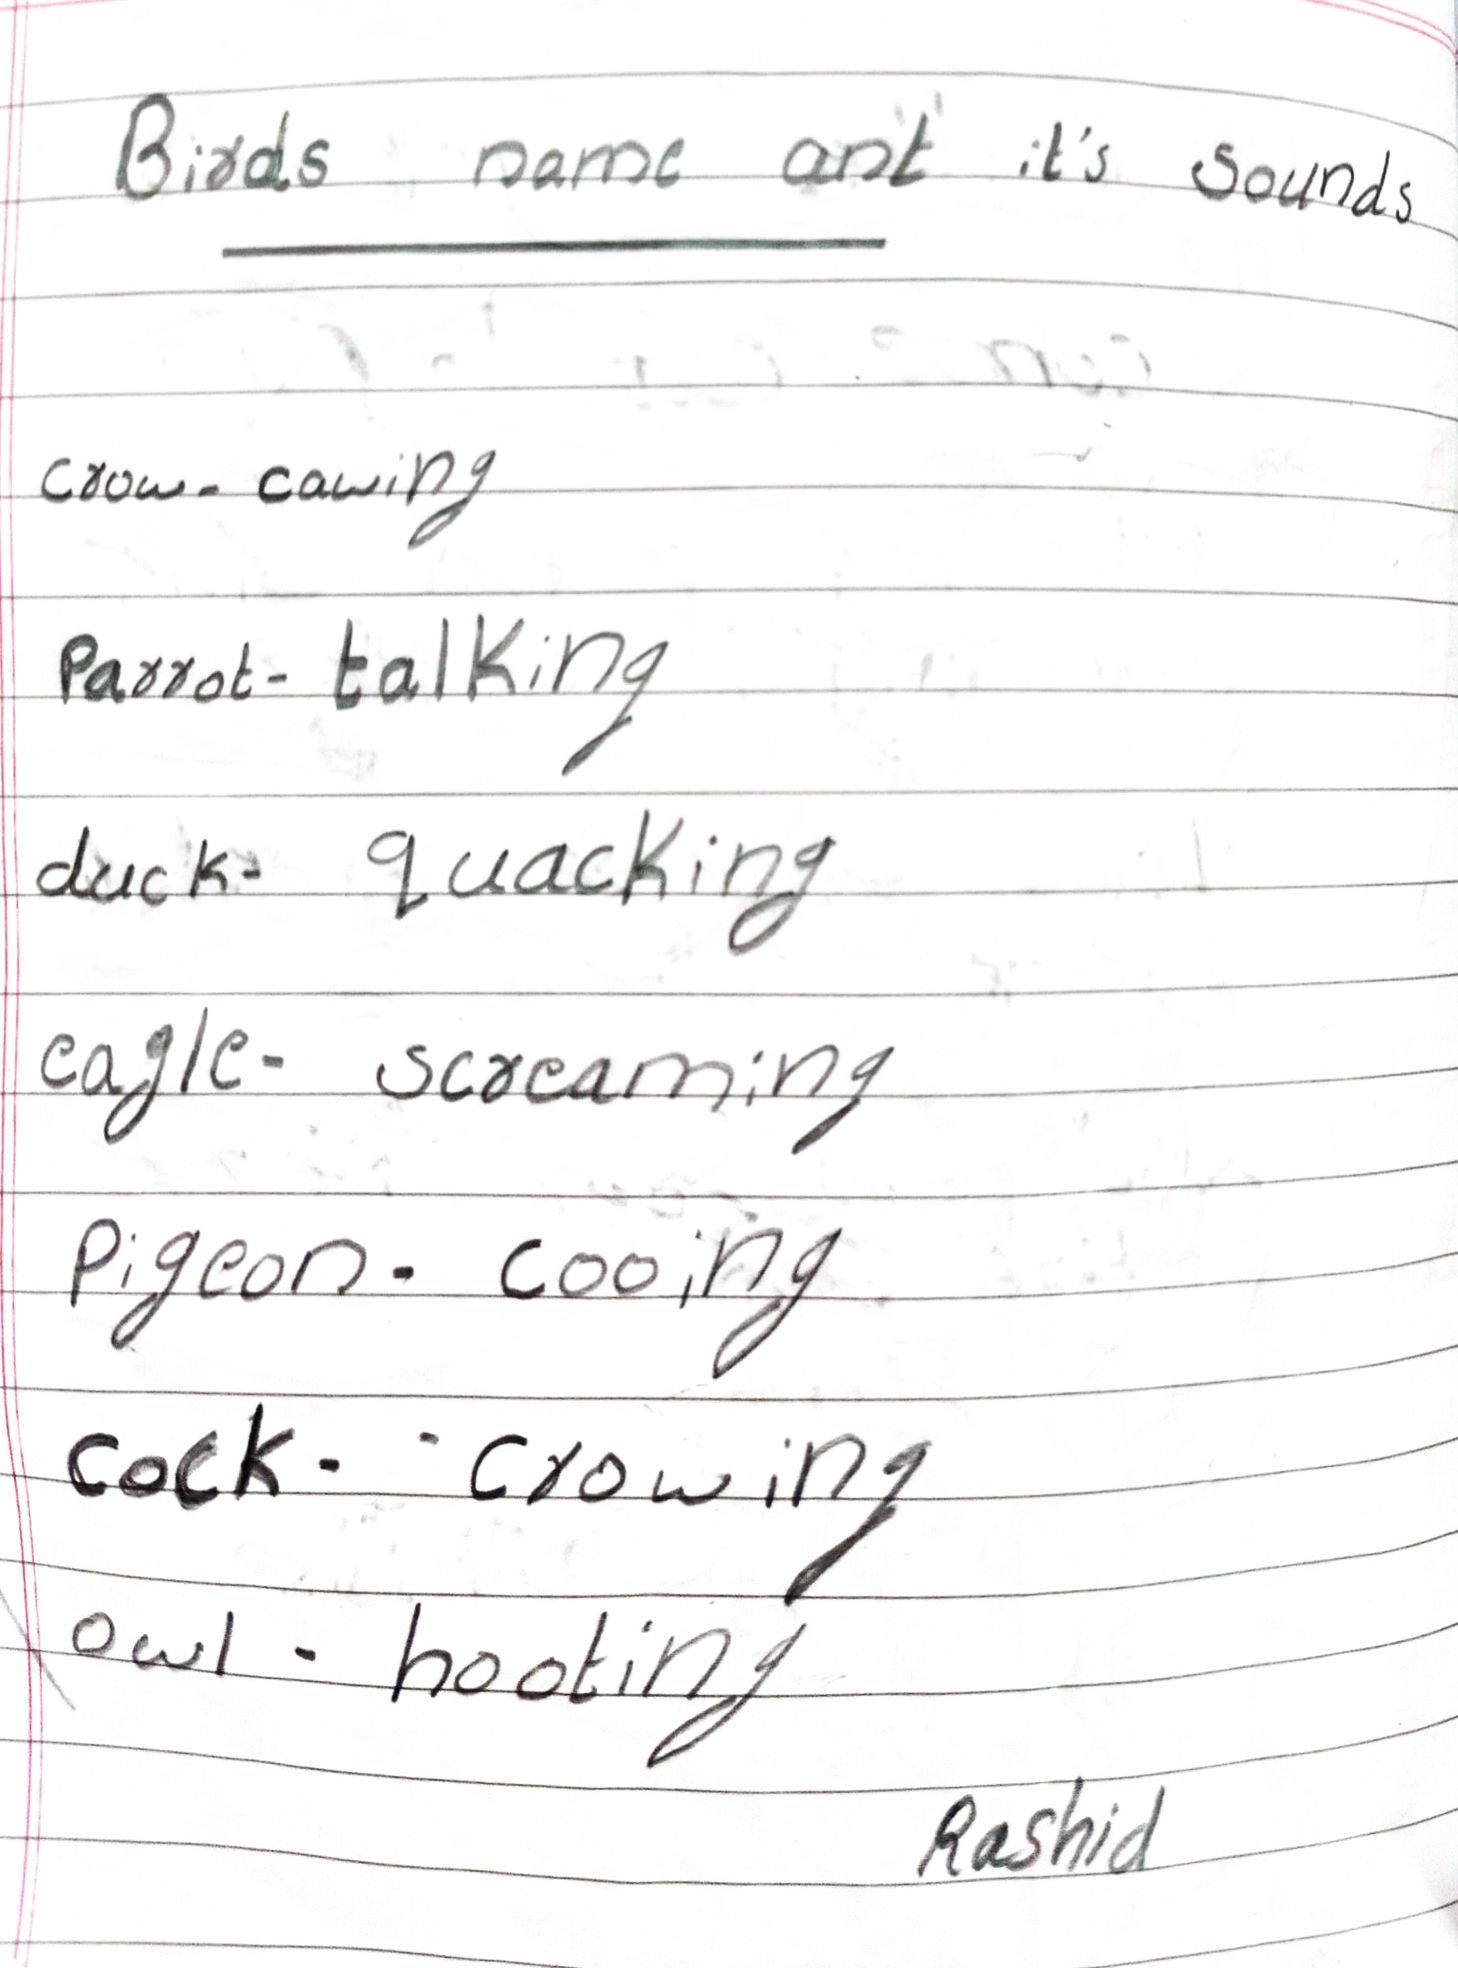 Birds name ant it's sounds
crow- cawing
Parrot- talking
duck- quacking
eagle- screaming
Pigeon- cooing
cock- crowing
owl - hooting
Rashid